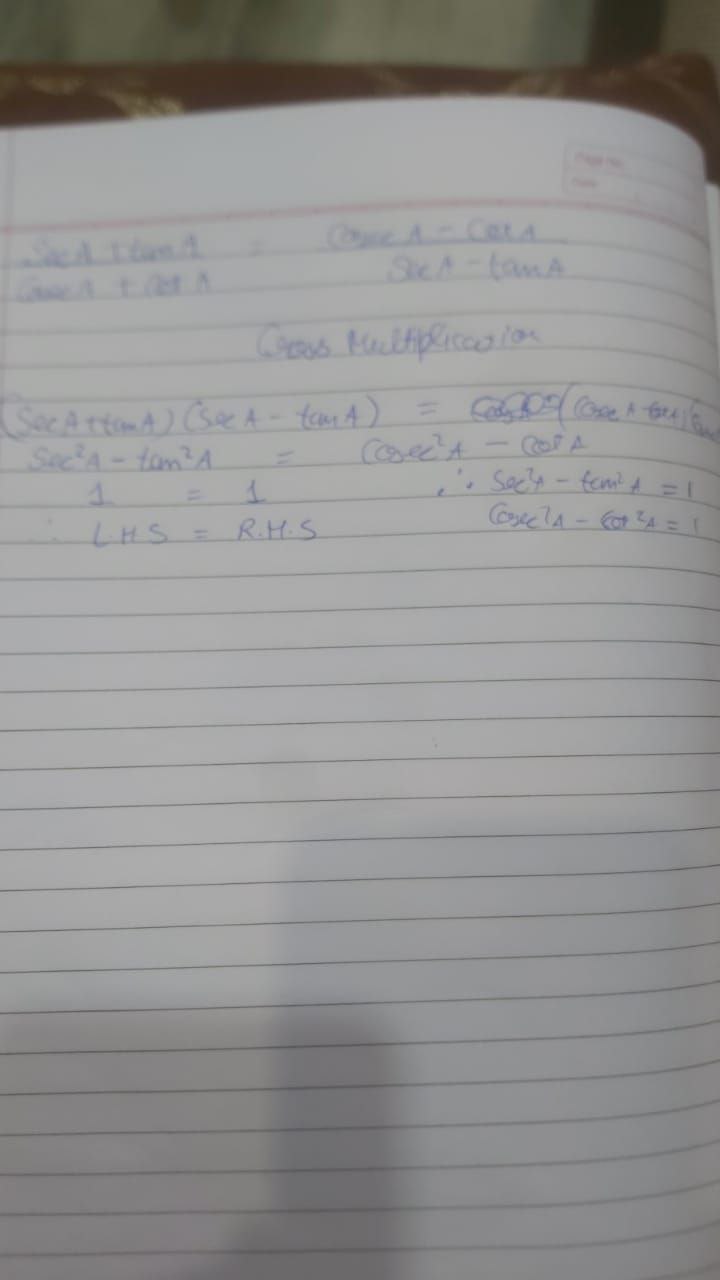 Page No.
Date
SecA + tanA = CosecA - CotA
CosecA + cotA SecA - tanA
Cross Multiplication
(SecA + tanA) (SecA - tanA) = (CosecA - cotA)
Sec²A - tan²A = Cosec²A - Cot²A
1 = 1 ∴ Sec²A - tan²A = 1
∴ LHS = R.H.S Cosec²A - Cot²A = 1